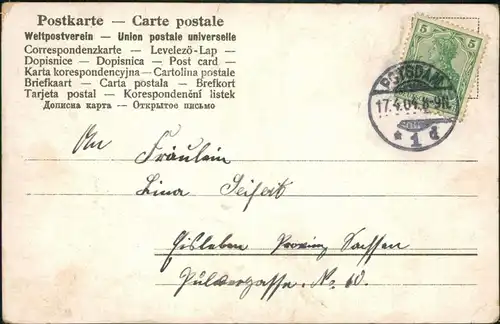 Postkarte — Carte postale
Weltpostverein — Union postale universelle
Correspondenzkarte — Levelező-Lap —
Dopisnice — Dopisnica — Post card —
Karta korespondencyjna—Cartolina postale
Briefkaart — Carta postala — Brefkort
Tarjeta postal — Korespondenční listek
Дописна карта — Открытое письмо
5 5
POTSDAM
17.4.04.8-9N.
* 1 d
An Fräulein
Lina Seifert
Eisleben Provinz Sachsen
Pulvergasse. No.